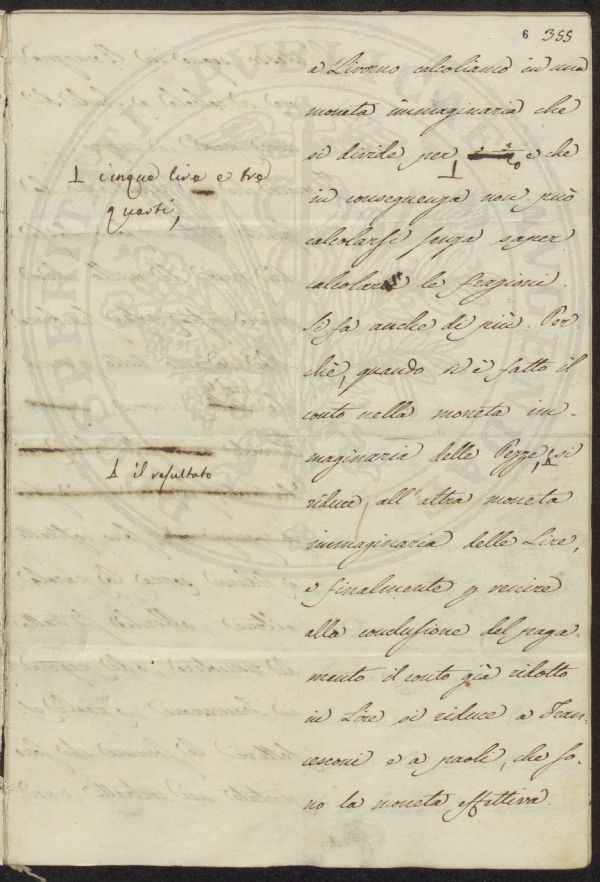 6 355
a Livorno calcoliamo in una
moneta immaginaria che
si divide per ⊥ e che
⊥ cinque lire e tre
quarti,
in conseguenza non può
calcolarsi, senza saper
calcolare le frazioni.
Si fa anche di più. Per-
chè, quando si è fatto il
conto nella moneta im-
maginaria delle Pezze, ⊥ si
⊥ il resultato
riduce, all'altra moneta
immaginaria delle Lire,
e finalmente p venire
alla conclusione del paga-
mento il conto già ridotto
in Lire si riduce a Fran-
cesconi e a paoli, che so-
no la moneta effettiva.